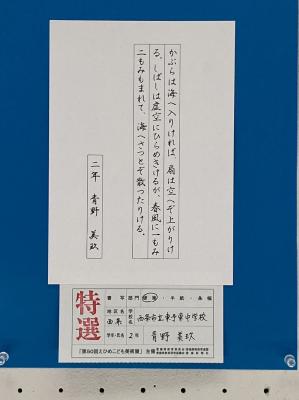 かぶらは海へ入りければ、扇は空へぞ上がりけ
る。しばしは虚空にひらめきけるが、春風に一もみ
二もみもまれて、海へさつとぞ散つたりける。
二年 青野 美玖
特選
書写部門 硬筆・半紙・条幅
地区名 西条
学校名 西条市立東予東中学校
学年・氏名 2年 青野 美玖
「第50回えひめこども美術展」
主催